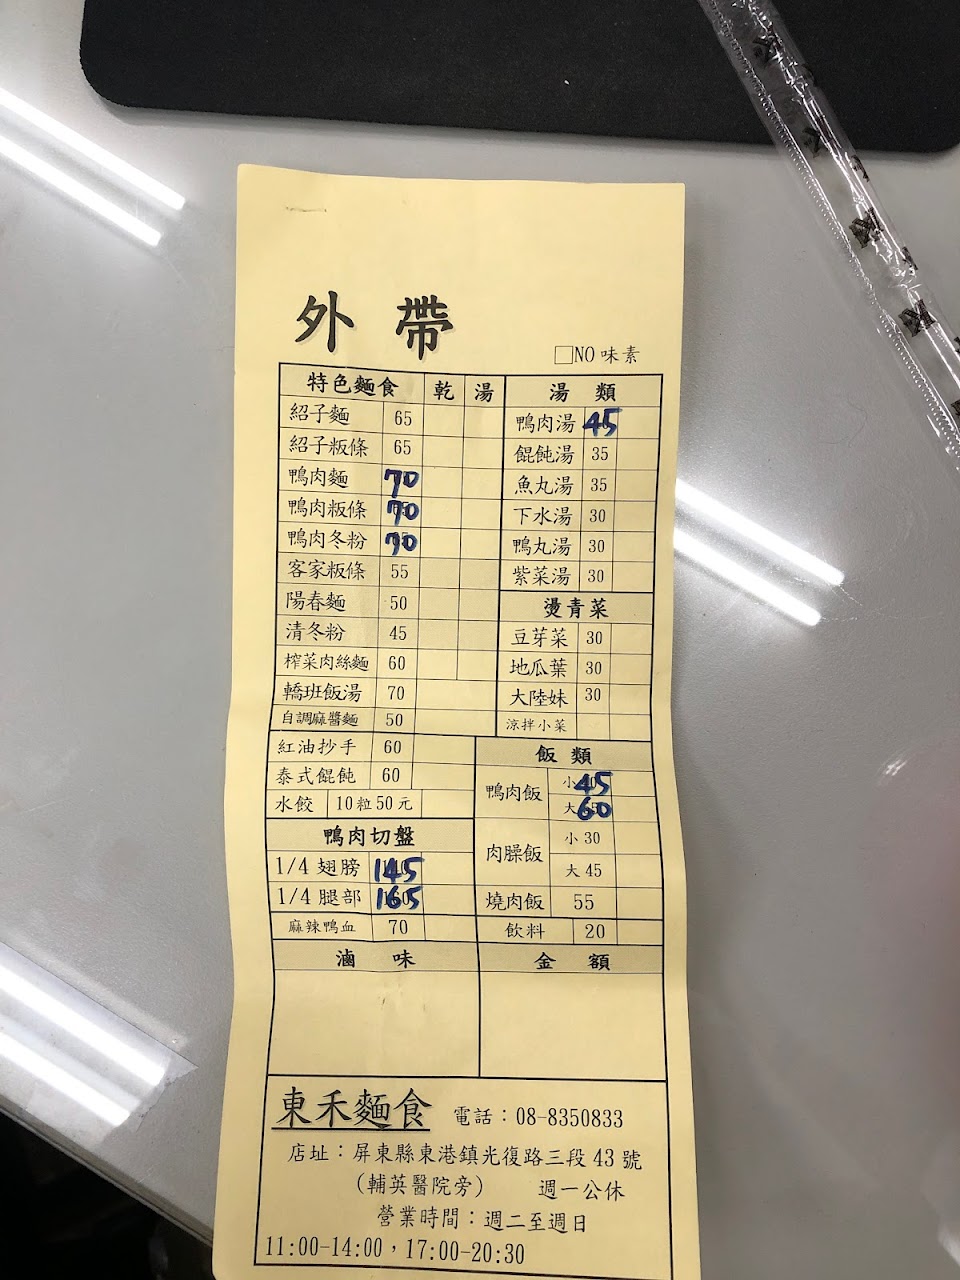 外帶
□NO 味素
特色麵食 乾 湯
紹子麵 65
紹子粄條 65
鴨肉麵 70
鴨肉粄條 70
鴨肉冬粉 70
客家粄條 55
陽春麵 50
清冬粉 45
榨菜肉絲麵 60
轎班飯湯 70
自調麻醬麵 50
紅油抄手 60
泰式餛飩 60
水餃 10粒50元
鴨肉切盤
1/4 翅膀 145
1/4 腿部 165
麻辣鴨血 70
滷味
湯類
鴨肉湯 45
餛飩湯 35
魚丸湯 35
下水湯 30
鴨丸湯 30
紫菜湯 30
燙青菜
豆芽菜 30
地瓜葉 30
大陸妹 30
涼拌小菜
飯類
鴨肉飯 小 45
大 60
肉臊飯 小 30
大 45
燒肉飯 55
飲料 20
金額
東禾麵食 電話：08-8350833
店址：屏東縣東港鎮光復路三段 43 號
（輔英醫院旁） 週一公休
營業時間：週二至週日
11:00-14:00，17:00-20:30